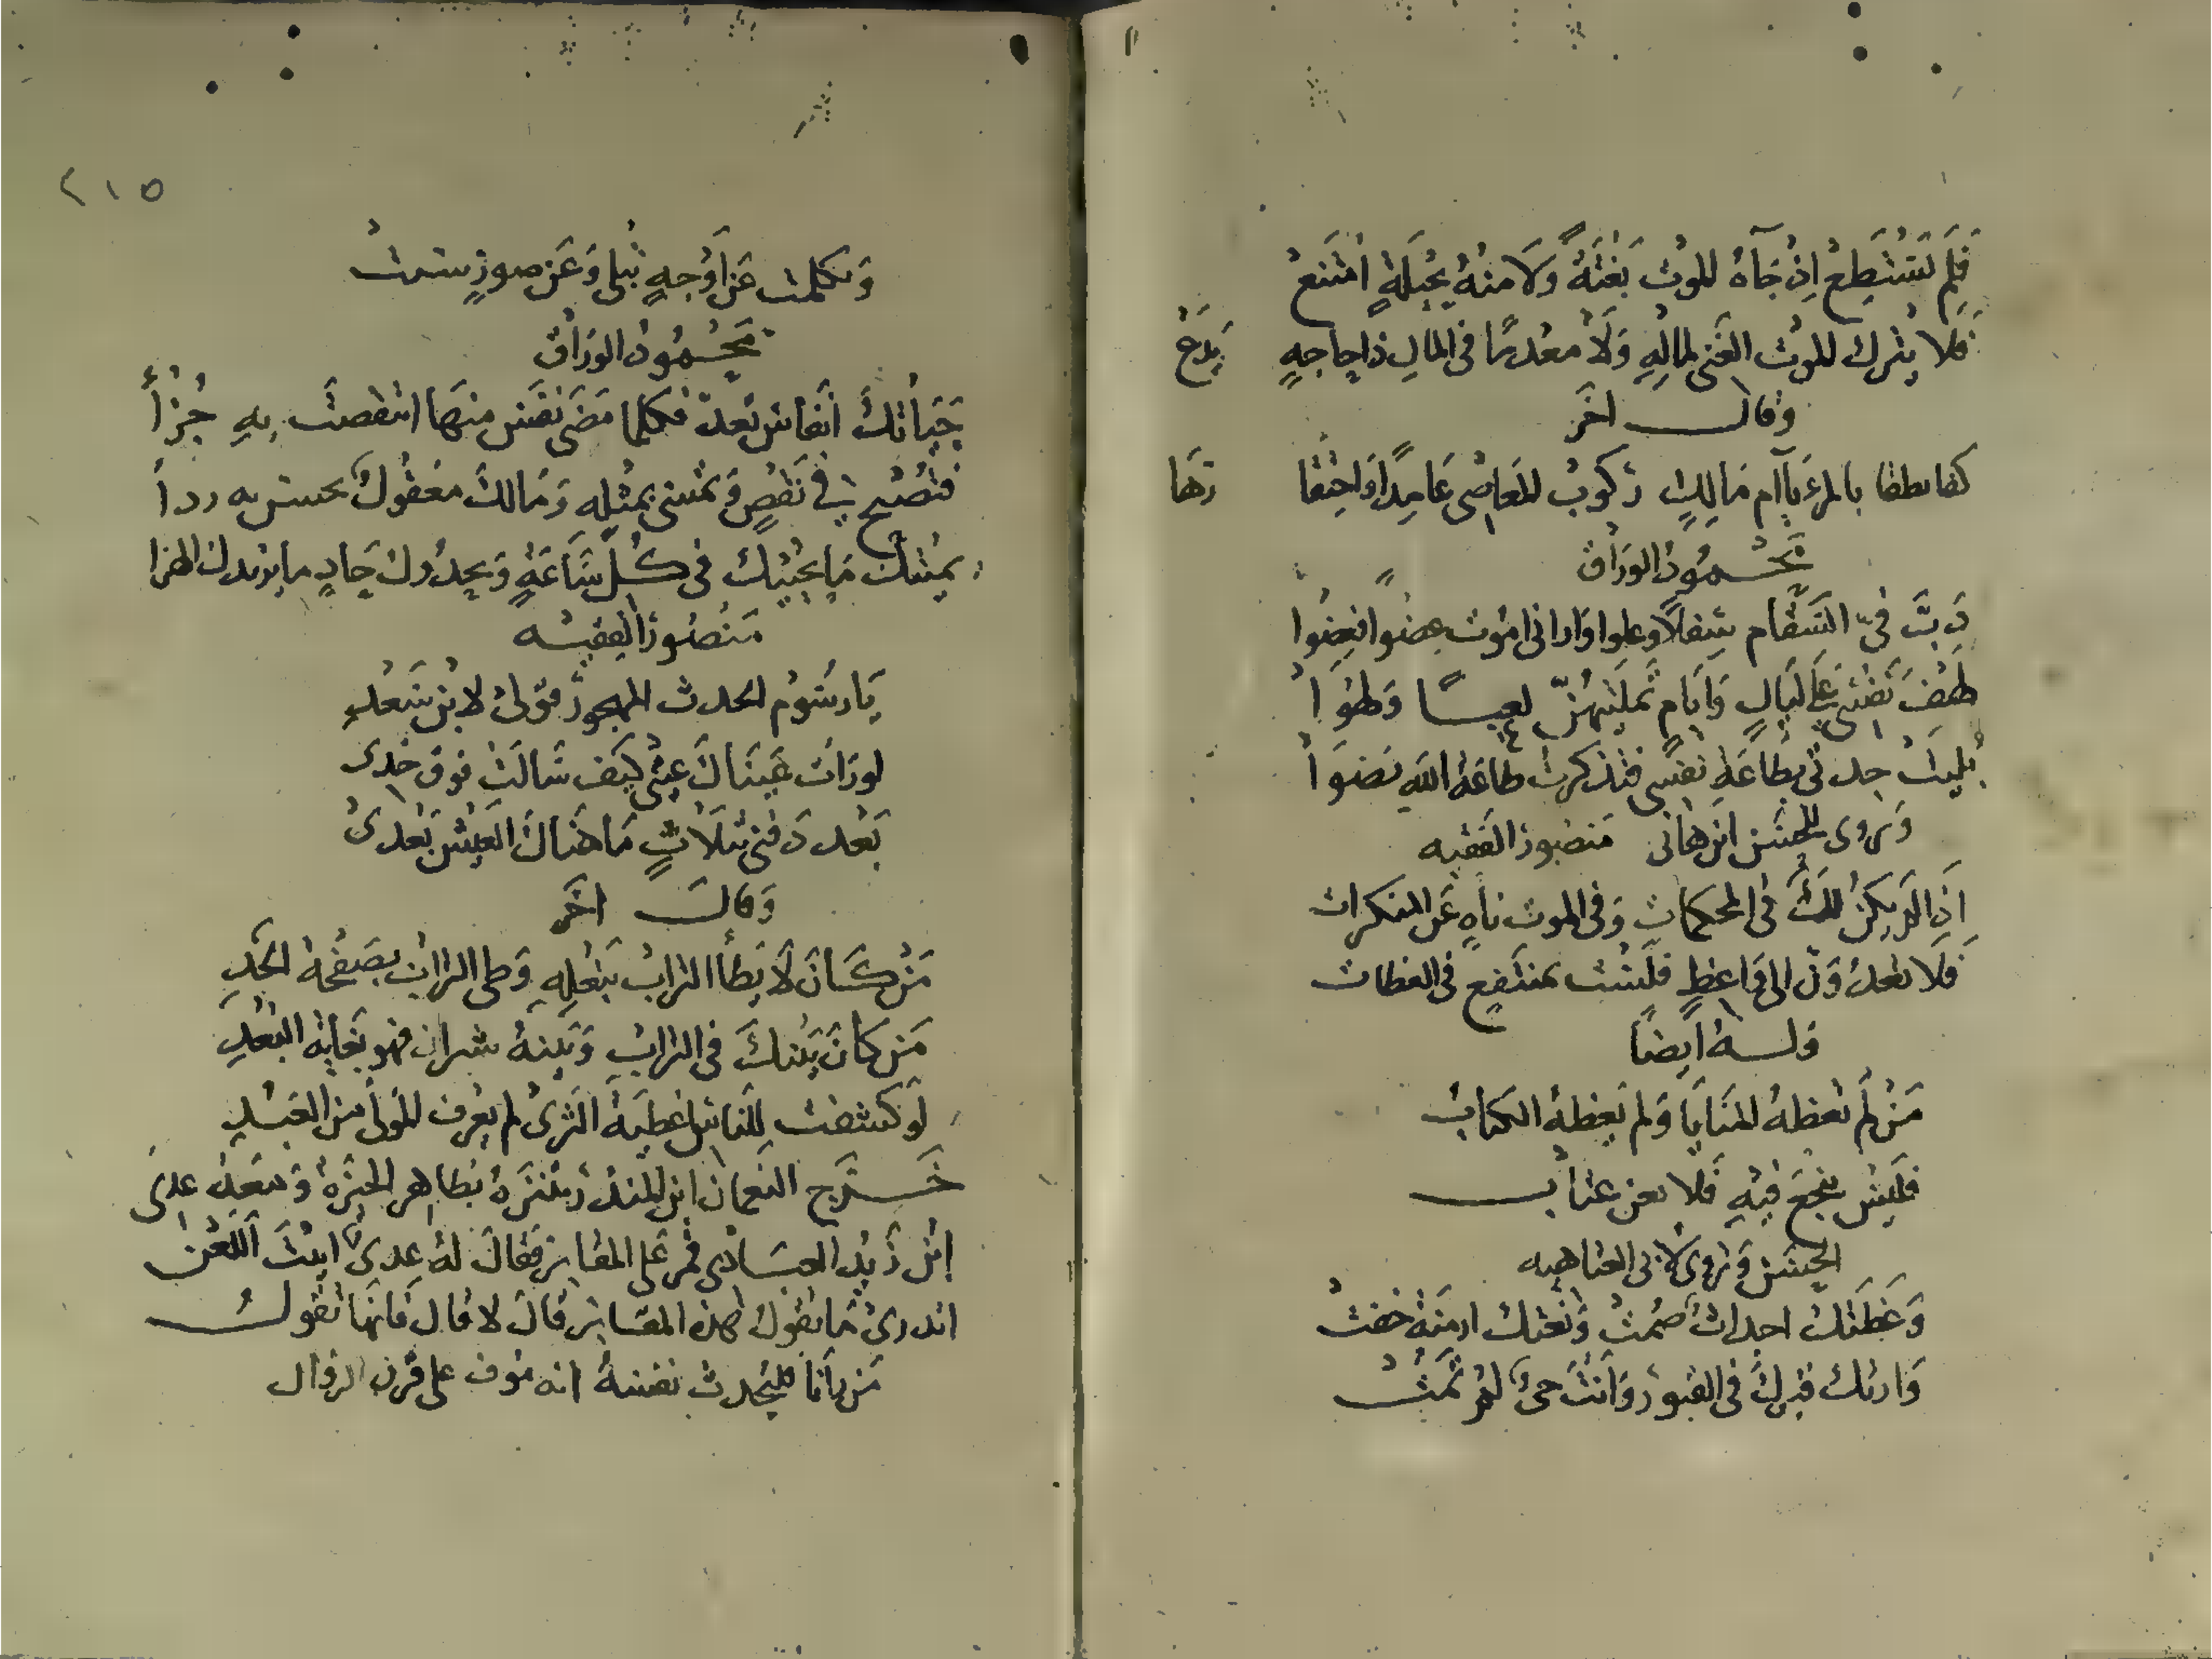 فَلَم تَسْتَطِعْ اِذْ جَآهُ المُوتُ بَغْتَةً وَلَا مِنْهُ بِحِيلَةٍ امْتَنَعْ
فَلا يترك المُوتُ الغَنى لِمالِهِ وَلَا مُعْدِمًا فى المالِ ذا حاجهٍ يَدَعْ
وقال اخَر
بالمرءِ يآ ام مَالِكٍ رُكوبُ المَعَاصِى عَامِدًا وَاحِتِقا رُهَا
مَحْمُودُ الورَاق
دَبَّ فىّ السّقَام سِفلًا وعلوا وَارانى امُوت عضوًا فعِضُوا
لَيَالٍ وَايَامٍ تَمَلَيْتُهُنَّ لعِبًا وَلهْوَا
بَليتْ جدتى بطَاعَةِ نفْسِى فتذكرت طاعَةَ اللّهِ نَضوَا
وَيُروى للحَسَن ابن هانى مَنصُورُ الفَقيه
اِذِا لَم يكنْ لَكَ فى المحكماتِ وَفى الموت ناهٍ عَن المنكرات
فَلَا تعْدُوَنّ الى وَاعظٍ فلَسْتَ بمنتَفِعٍ فى العظات
وَلهُ ايضاً
مَنْ لَم تعظهُ المَنَايَا وَلم يَعِظهُ الكتابُ
فلَيسَ ينجَعَ فيهِ فَلا عتابُ
الحَسَن وَيُروى لابى العتاهيه
وَعَظَتْكَ اجداثٌ صُمُتْ وَنَعَتْكَ ازمنَةٌ خفتْ
وَارتك قبركَ فى القبورِ وَانْتَ حىٌ لم تَمُتْ
٢١٥
وَتكلمت عَن اَوْجهٍ تُبلى وَعَن صورٍ
مَحْمُودُ الورَاقُ
حَيَاتكَ انفاسٌ تعدّ فكلما مَضَى نَفَسٌ منهَا انتقصتَ بهِ جُزْأَ
فتُصْبح فى نَقْصٍ وَتمْسِى بمثْلِهِ وَمَالك مَعْقُولٌ تحس به
يميتك مَا يحْيِيك فى كُلّ سَاعَةٍ وَيحدُوك حَادٍ ما يريد بك الهزا
مَنْصُورُ الفقيه
يَا رسُوم الحدث المهجور قولى لابْن سَعْدِ
لو رَات عَيْنَاكَ عينى كيفَ سَالَتْ فوقَ خدِى
بَعْد دَفنى بثلَاثٍ مَا هَنَاكَ العَيْش بَعْدىْ
وَقالَ اخَر
مَنْ كَانَ لَا يَطَأ الترابَ بِنَعْلِهِ وَطى الترابَ بصَفْحَةِ الخَدِ
مَن كانَ بَيْنكَ فى الترابِ وَبينهُ شبران فهو بغَايَةِ البُعْدِ
لَو كشفتْ للنَاسِ اغطيَةُ الثرىْ لم يعْرف المَولَى من العَبْدِ
خَرَج النعمان ابن المنذر يتنَزهُ بظاهِر الحِيْرَةِ وَمَعَهُ عدِىّ
ابْن زَيدٍ العبَادى فمر عَلى المقابر فقالَ لهُ عدى ابيْتَ اللّعْن
اتدرى مَا تقول هذه المقابر قال لا قالَ فَانهَا تقولُ
مَن رَانا فليُحدث نفسَهُ انه مُوف على قَرن الزوال